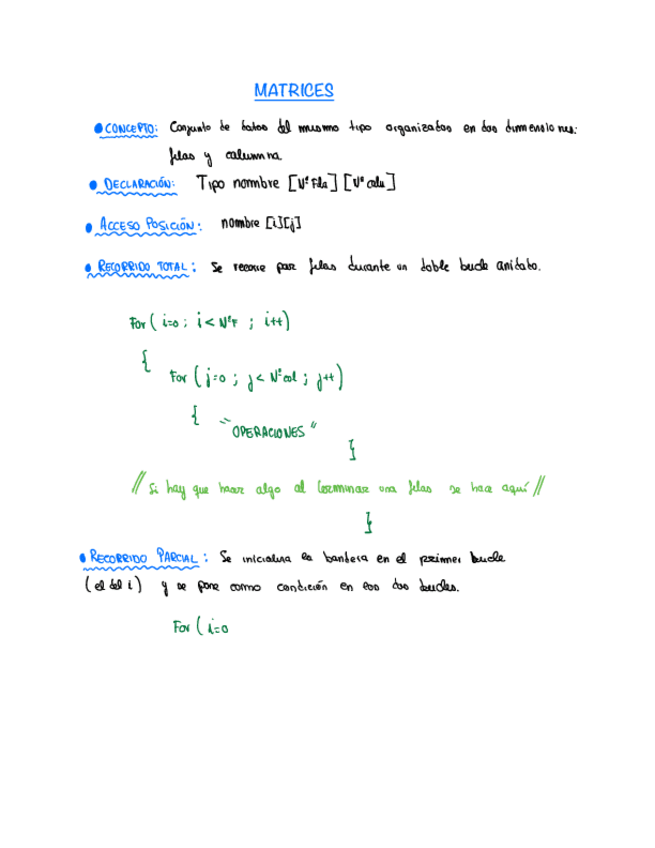 MATRICES
CONCEPTO: Conjunto de datos del mismo tipo organizados en dos dimensiones:
filas y columna.
DECLARACIÓN: Tipo nombre [Nº Fila] [Nº colu]
ACCESO POSICIÓN: nombre [i][j]
RECORRIDO TOTAL: Se recorre por filas durante un doble bucle anidado.
For ( i=0 ; i < NºF ; i++)
{
For ( j=0 ; j < Nºcol ; j++)
{ "OPERACIONES"
}
// Si hay que hacer algo al terminar una filas se hace aquí //
}
RECORRIDO PARCIAL: Se inicializa la bandera en el primer bucle
(el del i) y se pone como condición en los dos bucles.
For ( i=0